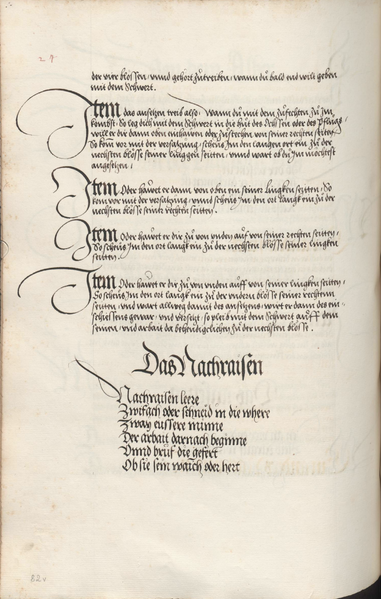 29
der vier blossen, vnnd gehört zutreiben, wann du bald end wilt geben
mit dem Schwert.
Item das ansetzen treib also, Wann du mit dem zufechten zu Im
kombst, So leg dich mit dem Schwert in die hut des Ochssen oder des Pflugs,
will er dir dann oben einhauen oder zustechen von seiner rechten seitten,
So kom vor mit der versatzung, scheus Im den langen ort ein zu der
nechsten blösse seiner linggen seitten, vnnd wart ob du Im mochtest
angesetzen.
Item Oder hawet er dann von oben ein seiner lingken seitten, So
kom vor mit der versatzung, vnnd scheus Im den ort langk ein zu der
nechsten blösse seiner rechten seitten.
Item Oder hawet er dir zu von vnden auf von seiner rechten seitten,
So scheus Im den ort langk ein zu der nechsten blösse seiner lingken
seitten.
Item Oder hawet er dir zu von vnden auff von seiner lingken seitten,
So scheus Im den ort langk ein zu der vndern blösse seiner rechtenn
seitten, vnnd wart allweg damit des ansetzens, wirt er dann des ein
schiessens gewar, vnd versetzt, so pleib mit dem Schwert auff dem
seinen, vnd arbait da behendigclichen zu der nechsten blösse.
Das Nachraisen
Nachraisen leere
Zwifach oder schneid in die where
Zway eussere minne
Der arbait darnach beginne
Vnnd brüf die gefert
Ob sie sein waich oder hert
82v